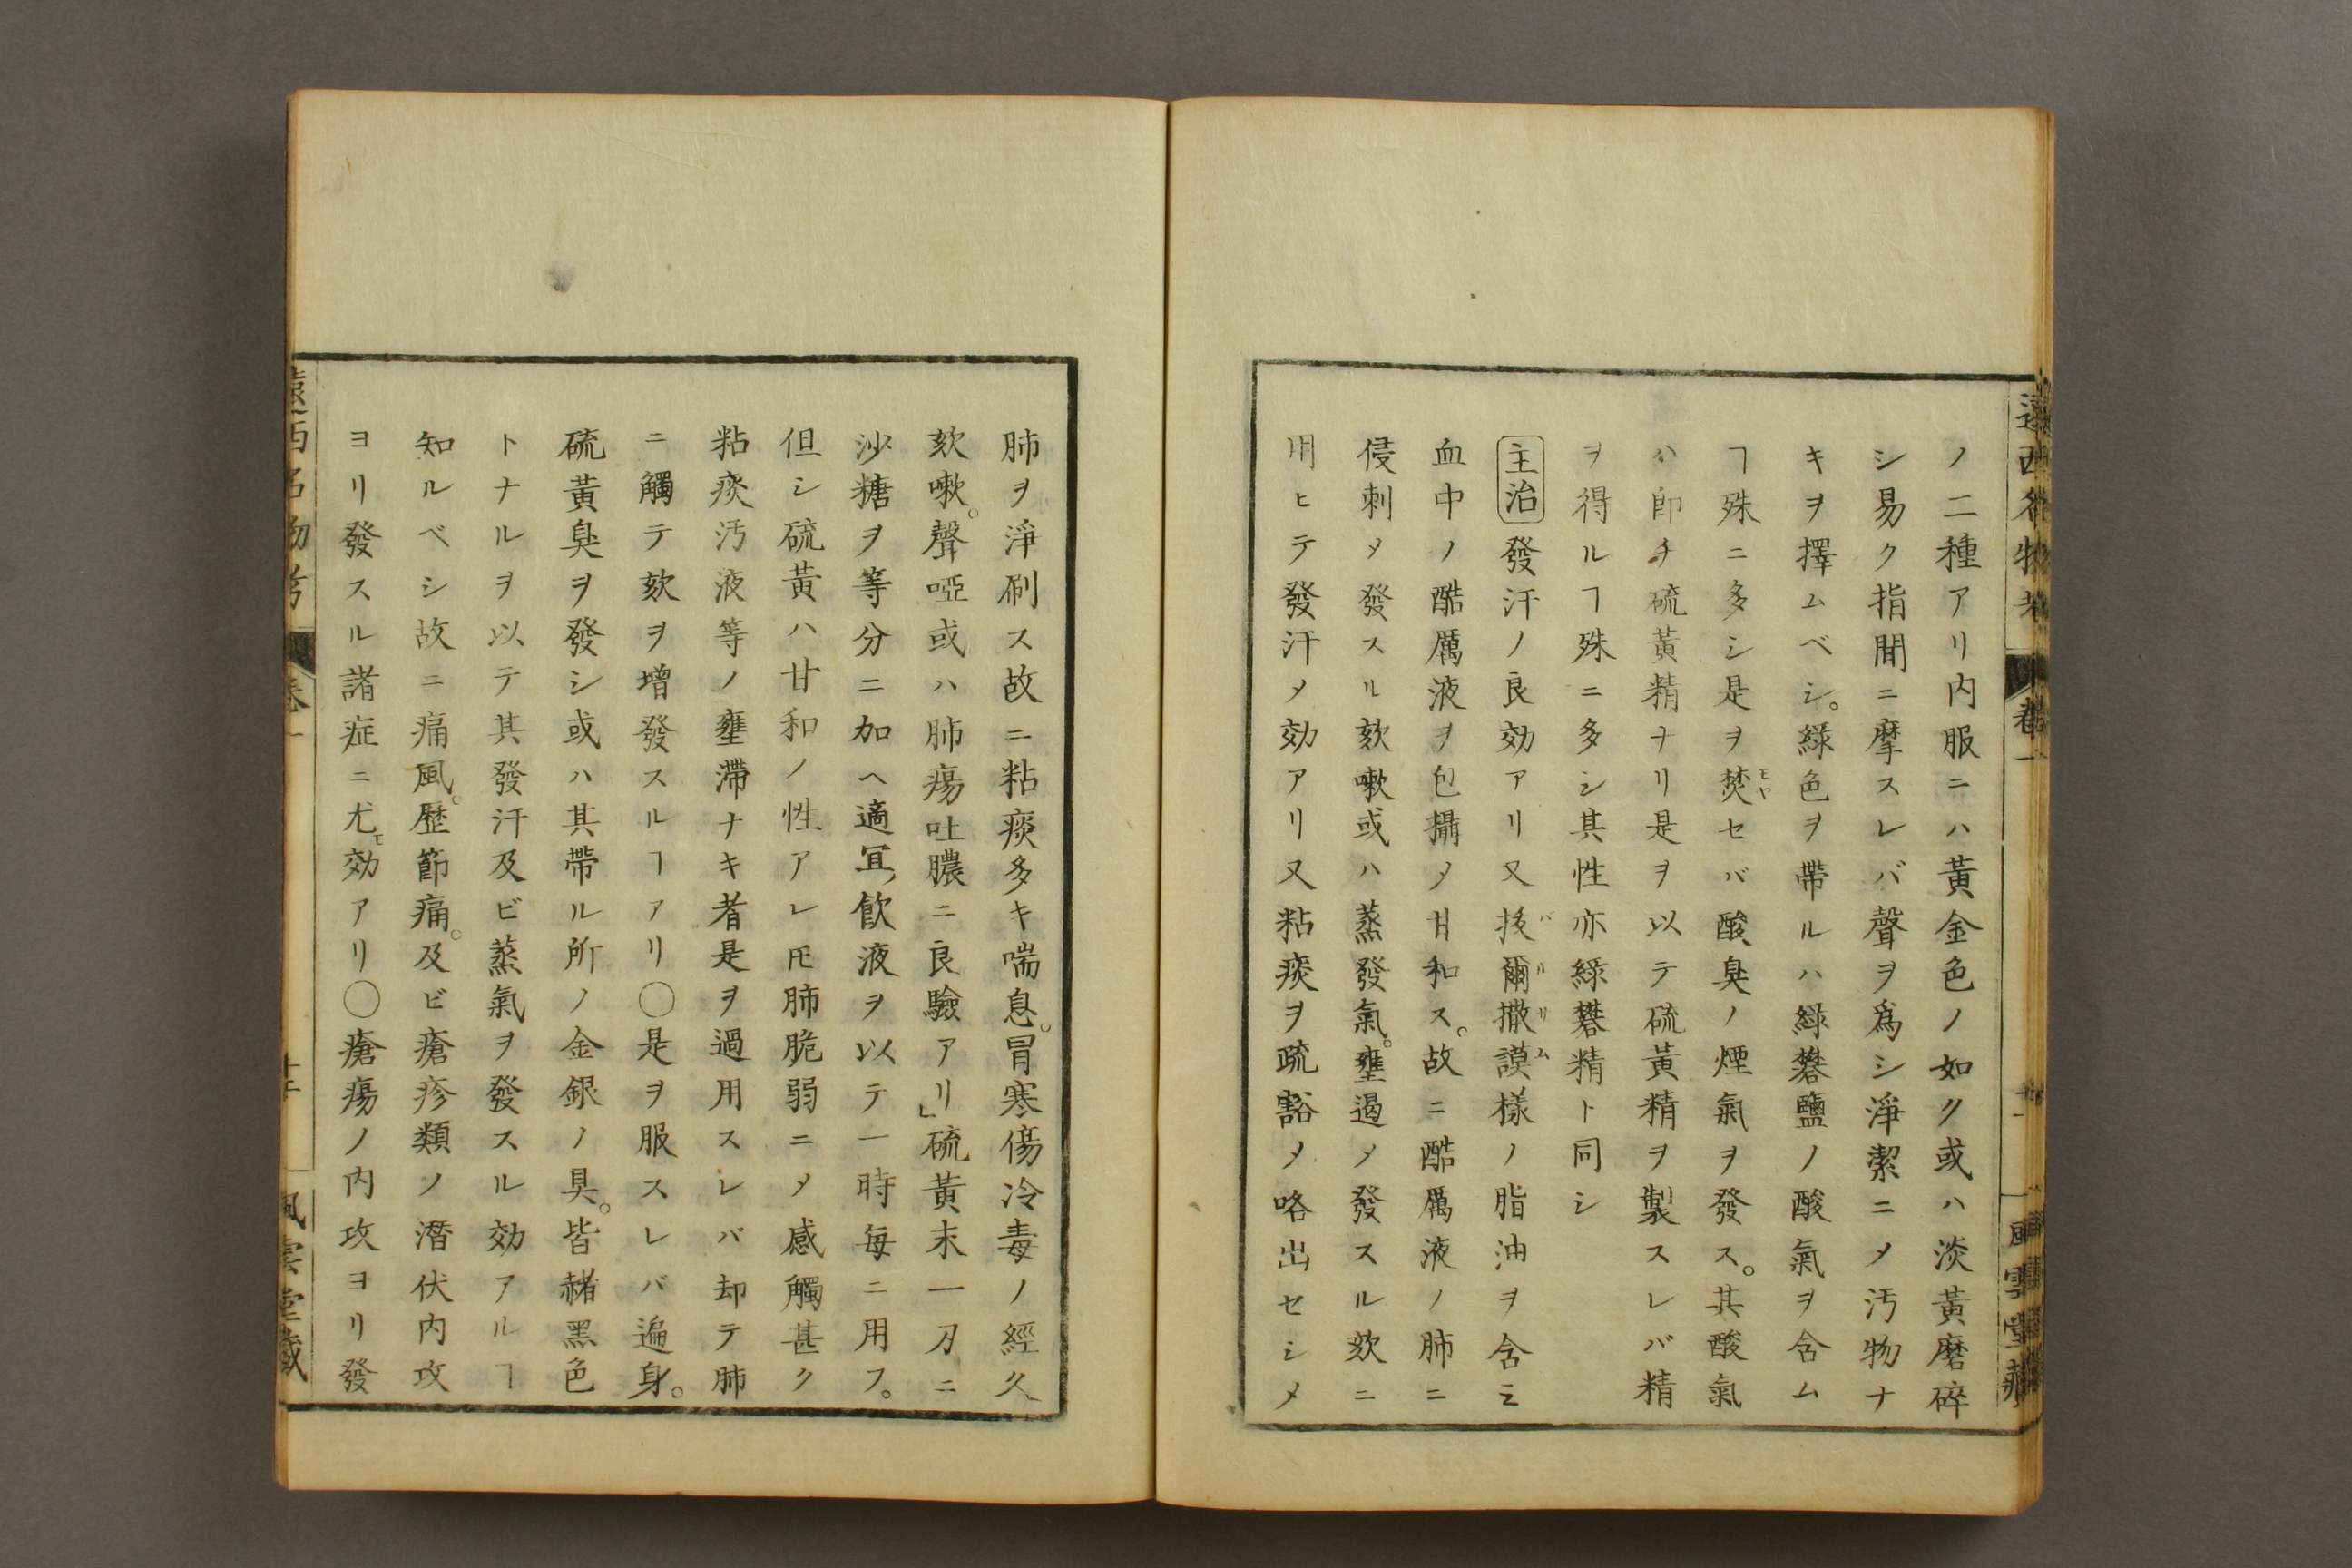 遠西名物考 卷一 風雲堂藏
ノ二種アリ内服ニハ黃金色ノ如ク或ハ淡黃磨碎
シ易ク指聞ニ摩スレバ聲ヲ爲シ淨潔ニメ汚物ナ
キヲ擇ムベシ。綠色ヲ帶ルハ綠礬鹽ノ酸氣ヲ含ム
ヿ殊ニ多シ是ヲ焚セバ酸臭ノ煙氣ヲ發ス。其酸氣
ハ卽チ硫黃精ナリ是ヲ以テ硫黃精ヲ製スレバ精
ヲ得ルヿ殊ニ多シ其性亦綠礬精ト同シ
主治 發汗ノ良効アリ又抜爾撒謨樣ノ脂油ヲ含ミ
血中ノ酷厲液ヲ包攝メ甘和ス。故ニ酷厲液ノ肺ニ
侵刺メ發スル欬嗽或ハ蒸發氣。壅遏メ發スル欬ニ
用ヒテ發汗メ効アリ又粘痰ヲ疏豁メ咯出セシメ
肺ヲ淨刷ス故ニ粘痰多キ喘息。冒寒傷冷毒ノ經久
欬嗽。聲啞或ハ肺瘍吐膿ニ良驗アリ」硫黃末一刀ニ
沙糖ヲ等分ニ加ヘ適宜飮液ヲ以テ一時每ニ用フ。
但シ硫黃ハ甘和ノ性アレ𪜈肺脆弱ニメ感觸甚ク
粘痰汚液等ノ壅滯ナキ者是ヲ過用スレバ却テ肺
ニ觸テ欬ヲ增發スルヿアリ〇是ヲ服スレバ遍身。
硫黃臭ヲ發シ或ハ其帶ル所ノ金銀ノ具。皆赭黑色
トナルヲ以テ其發汗及ビ蒸氣ヲ發スル効アルヿ
知ルベシ故ニ痛風。歷節痛。及ビ瘡疹類ノ潛伏内攻
ヨリ發スル諸症ニ尤モ効アリ〇瘡瘍ノ内攻ヨリ發
遠西名物考 卷一 風雲堂藏